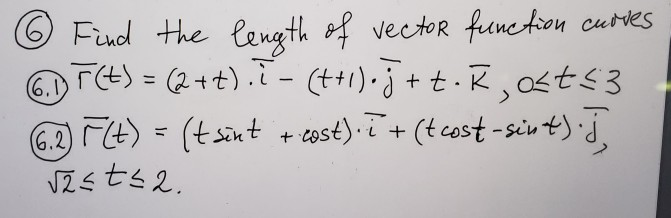 ⑥ Find the length of vector function curves
(6.1) r̅(t) = (2+t)·i̅ - (t+1)·j̅ + t·k̅, 0≤t≤3
(6.2) r̅(t) = (t sint + cost)·i̅ + (t cost - sint)·j̅,
√2 ≤ t ≤ 2.